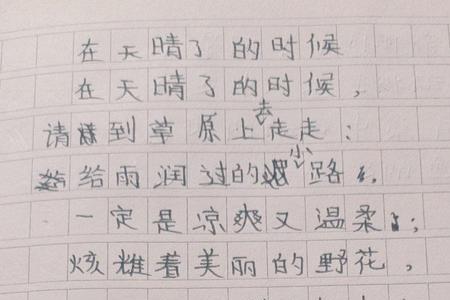 在天晴了的时候
在天晴了的时候，
请到草原上去走走：
给雨润过的小路，
一定是凉爽又温柔；
炫雅着美丽的野花，